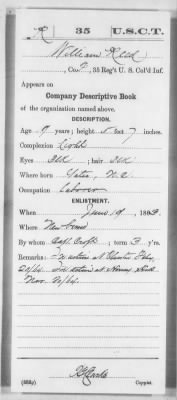 R | 35 | U.S.C.T.
William Reed
, Co. , 35 Reg't U. S. Col'd Inf.
Appears on
Company Descriptive Book
of the organization named above.
DESCRIPTION.
Age 9 years; height 5 feet 7 inches.
Complexion Light
Eyes Blk ; hair Blk
Where born Gates, N.C.
Occupation Laborer
ENLISTMENT.
When June 19 , 1863.
Where New
By whom Capt. Croft ; term 3 y'rs.
Remarks: In action at Olustee Fla,
20/64. In action at Honey Hill
Nov. 30/64.
Copyist.